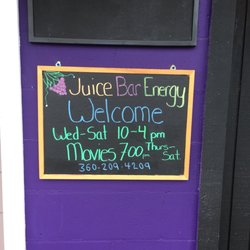 Juice Bar Energy
Welcome
Wed-Sat 10-4 pm
Movies 7:00 pm Thurs-Sat.
360-209-4209